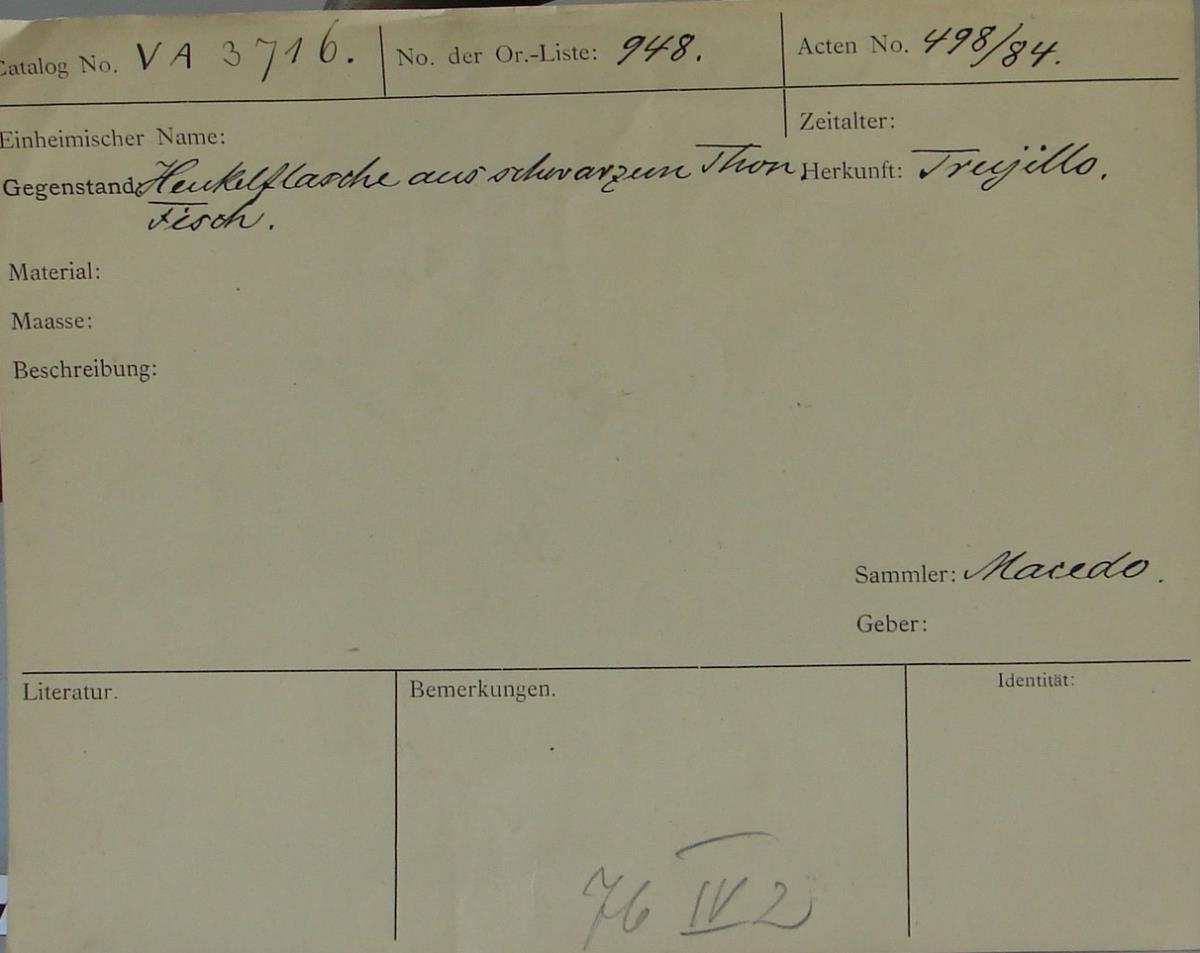 Catalog No. VA 3716.
No. der Or.-Liste: 948.
Acten No. 498/84.
Einheimischer Name:
Zeitalter:
Gegenstand: Henkelflasche aus schwarzem Thon
Fisch.
Herkunft: Trujillo.
Material:
Maasse:
Beschreibung:
Sammler: Macedo.
Geber:
Literatur.
Bemerkungen.
Identität:
76 IV 2